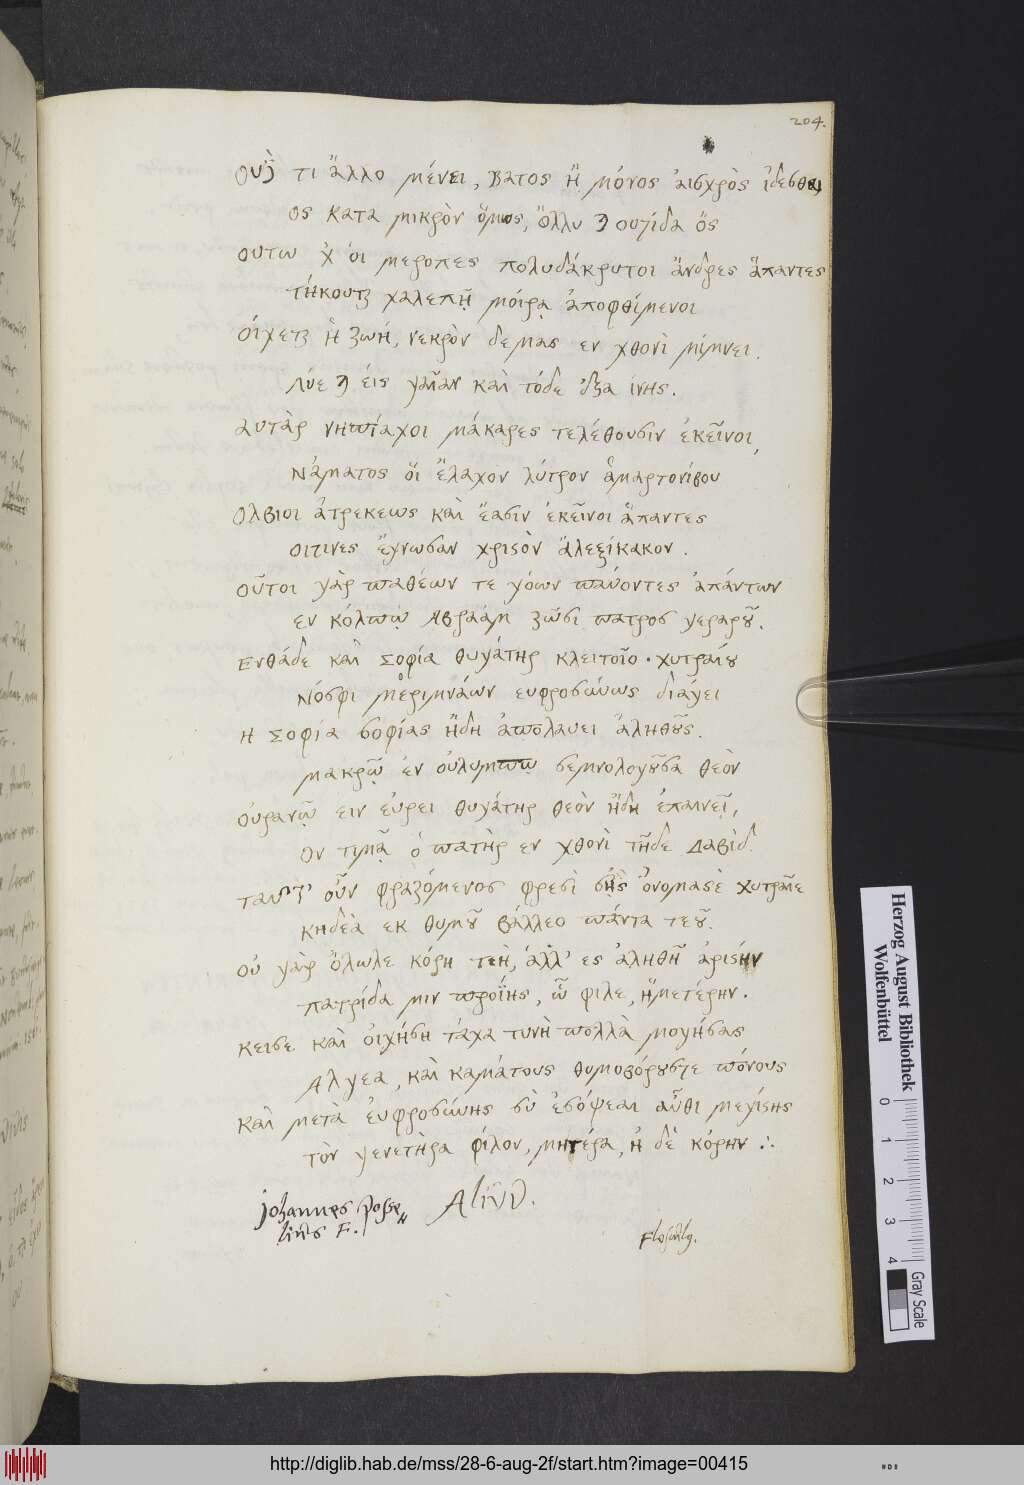 204.
τι ἄλλο μένει, βατος ἢ μόνος ἀισχρὸς ἰδεσθαι
ος κατα μικρὸν ὅμως, ὄλλυ ὅς
ουτω χ ὁι μεροπες πολυδάκρυτοι ἄνδρες ἅπαντες
χαλεπῇ μόιρᾳ ἀποφθίμενοι
ἡ ζωή, νεκρὸν δεμας εν χθονὶ μίμνει.
ἐις γαῖαν καὶ τόδε
αυτὰρ μάκαρες τελέθουσιν ἐκεῖνοι,
Νάματος ὅι ἔλαχον λύτρον ἁμαρτονόου
Ολβιοι ἀτρεκεως καὶ ἔασιν ἐκεῖνοι ἅπαντες
οιτινες ἔγνωσαν χριϛὸν ἀλεξίκακον.
οὗτοι γὰρ παθέων τε γόων παύοντες ἁπάντων
εν κόλπῳ Αβραάμ ζῶσι πατρος γεραροῦ.
Ενθάδε καὶ Σοφία θυγάτηρ κλειτοῖο · χυτραίου
Νόσφι μεριμνάων ευφροσύνως διάγει
Η Σοφία σοφίας ἤδη ἀπολαυει ἀληθοῦς.
μακρῷ ἐν ὀυλυμπῳ σεμνολογοῦσα θεὸν
ὀυρανῷ ειν ἐύρει θυγάτηρ θεὸν ἤδη ἐπαινεῖ,
Ον τιμᾷ ὁ πατὴρ εν χθονὶ τῇδε Δαβὶδ.
οὖν φραζόμενος φρεσὶ σῇς ὀνομασὲ χυτραῖε
κηδεὰ εκ θυμοῦ βάλλεο πάντα τεοῦ.
οὐ γὰρ ὄλωλε κόρη τεὴ, ἀλλ' ες ἀληθῆ ἀρίϛην
πατρίδα μιν προΐης, ὦ φιλε, ἡμετέρην.
κεισε καὶ οἰχήση τάχα τυνὴ πολλὰ μογήσας
Αλγεα, καὶ καμάτους θυμοβόρουςτε πόνους
καὶ μετὰ ἐυφροσύνης σὺ ἐσόψεαι αὖθι μεγίϛης
τὸν γενετῆρα φίλον, μητέρα, ἠ δὲ κόρην ∴
Johannes Posse=
lius F.
Herzog August Bibliothek
Wolfenbüttel
0 1 2 3 4
Gray Scale
http://diglib.hab.de/mss/28-6-aug-2f/start.htm?image=00415